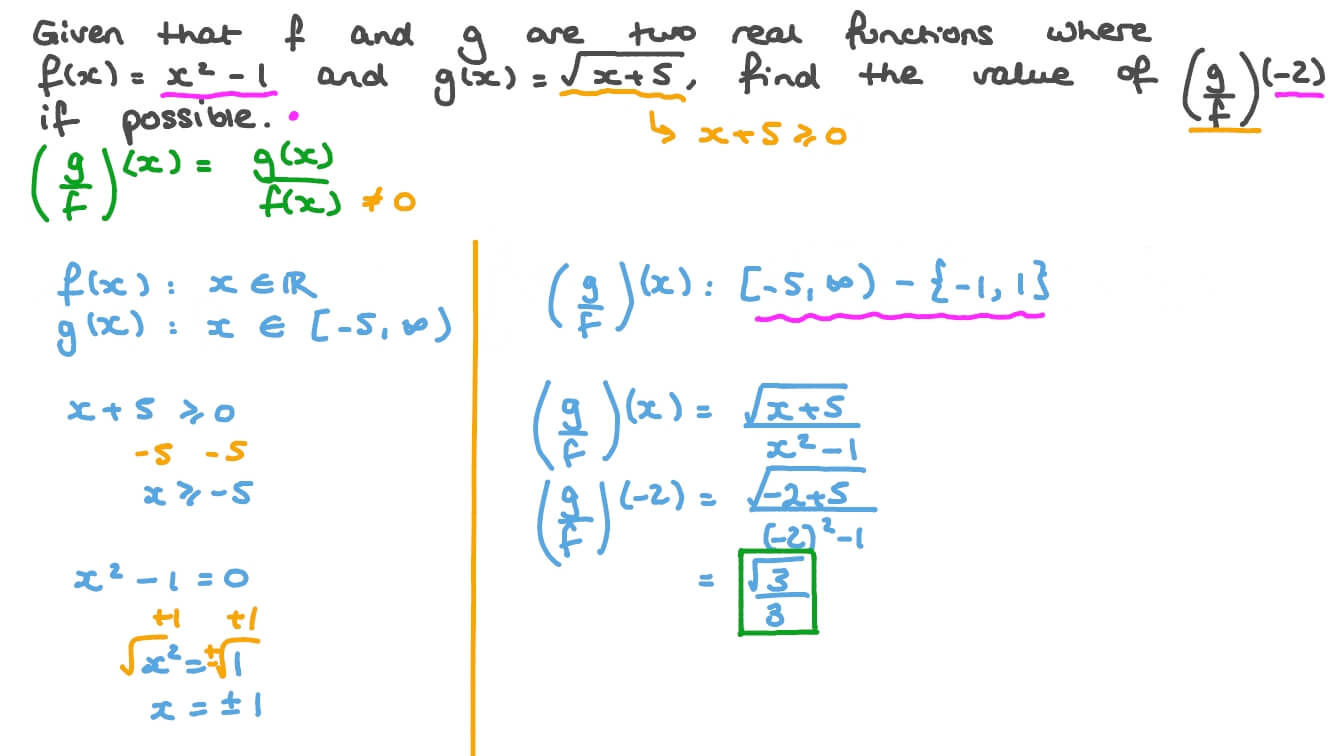 Given that f and g are two real functions where
f(x) = x² - 1 and g(x) = √(x+5), find the value of (g/f)(-2)
if possible.
↳ x+5 ⩾ 0
(g/f)(x) = g(x)/f(x) ≠ 0
f(x) : x ∈ ℝ
g(x) : x ∈ [-5, ∞)
x + 5 ⩾ 0
-5 -5
x ⩾ -5
x² - 1 = 0
+1 +1
√x² = ±√1
x = ± 1
(g/f)(x) : [-5, ∞) - {-1, 1}
(g/f)(x) = √(x+5)/(x² - 1)
(g/f)(-2) = √(-2+5)/((-2)² - 1)
= √3/3